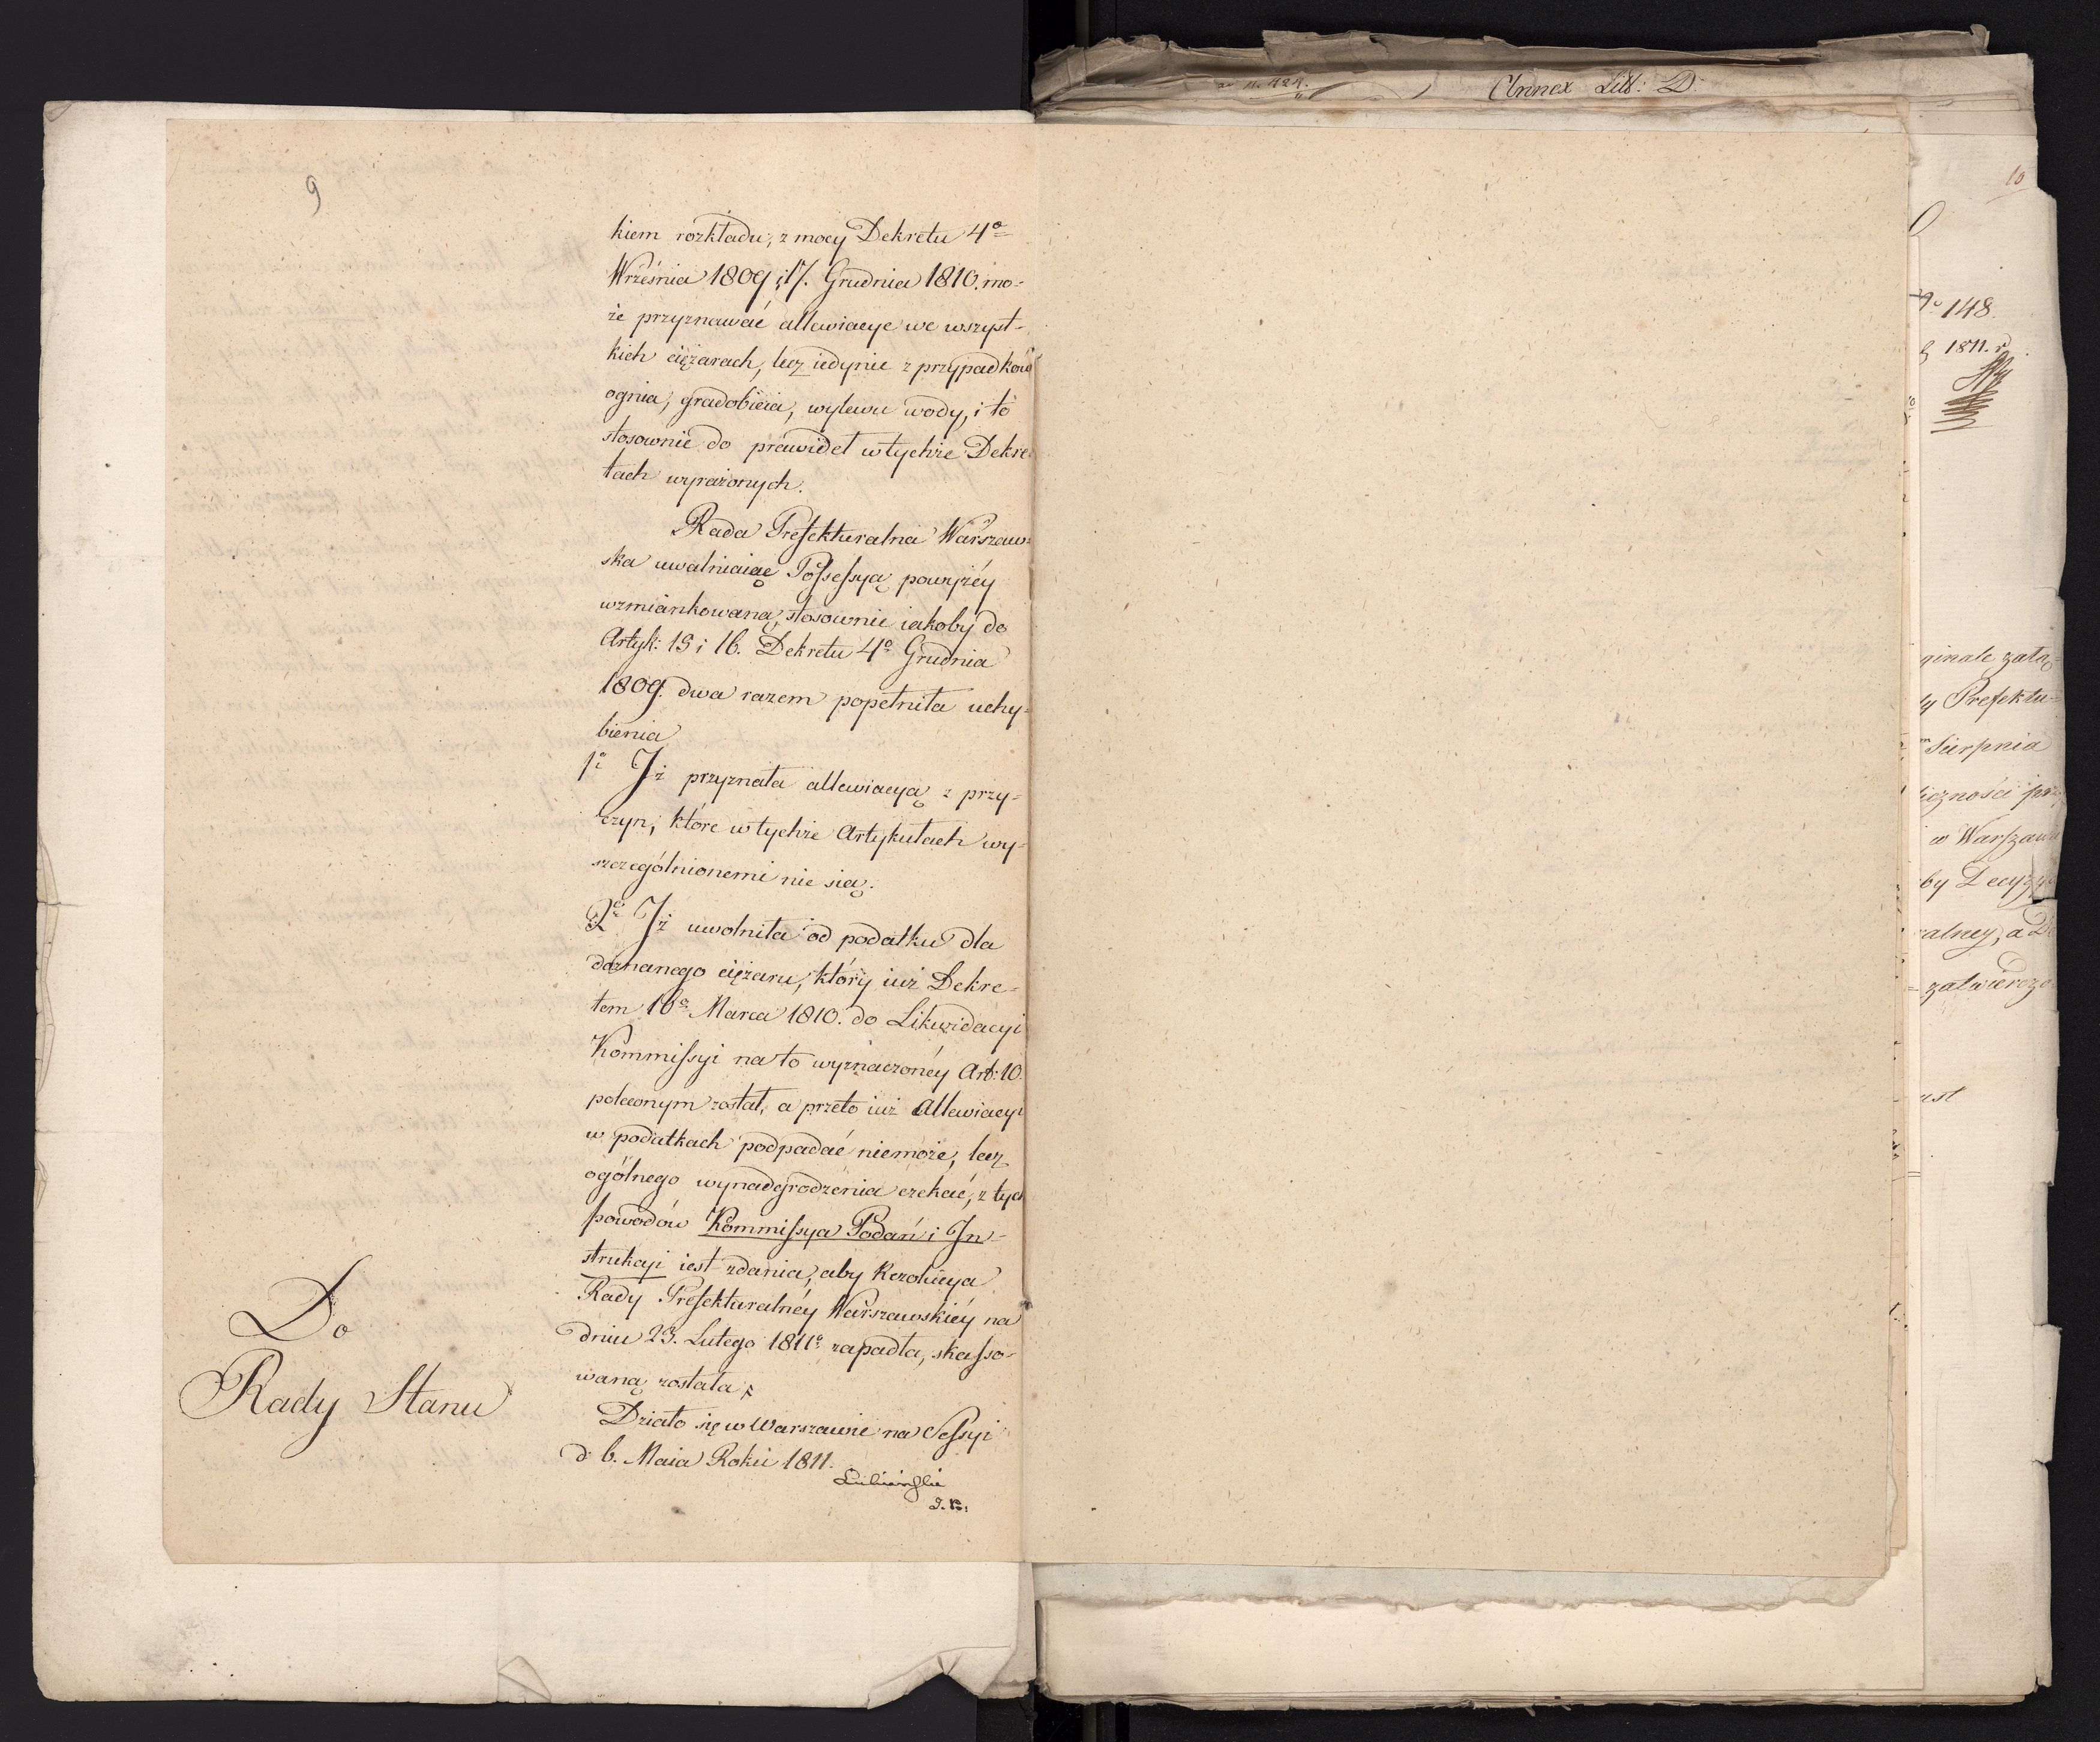 9
kiem rozkładu, z mocy Dekretu 4o
Września 1809 i 17. Grudnia 1810. mo-
że przyznawać allewiacye we wszyst-
kich ciężarach, lecz iedynie z przypadków
ognia, gradobicia, wylewu wody, i to
stosownie do prawideł w tychże Dekre
tach wyrażonych.
Rada Prefekturalna Warszaw-
ska uwalniaiąc Possessyą powyżéy
wzmiankowaną, stosownie iakoby do
Artyk: 15 i 16. Dekretu 4o Grudnia
1809. dwa razem popełniła uchy-
bienia
1o Iż przyznała allewiacyą z przy-
czyn, które w tychże Artykułach wy-
szczególnionemi nie są.
2o Iż uwolniła od podatku dla
doznanego ciężaru, który iuż Dekre-
tem 16o Marca 1810. do Likwidacyi
Kommissyi na to wyznaczonéy Art: 10.
poleconym został, a przeto iuż Allewiacyi
w podatkach podpadać niemoże, lecz
ogólnego wynadgrodzenia czekać, z tych
powodów Kommissya Podań i In-
strukcyi iest zdania, aby Rezolucya
Rady Prefekturalnéy Warszawskiéy na
dniu 23. Lutego 1811o zapadła, skasso-
waną została.
Działo się w Warszawie na Sessyi
d 6. Maia Roku 1811.
Do
Rady Stanu
Annex Litt: D.
10
No 148.
1811. r
ginale załą-
y Prefektu-
Sierpnia
iczności prz
w Warszawie
by Decyzy
alney, a D
zatwierdze
ust